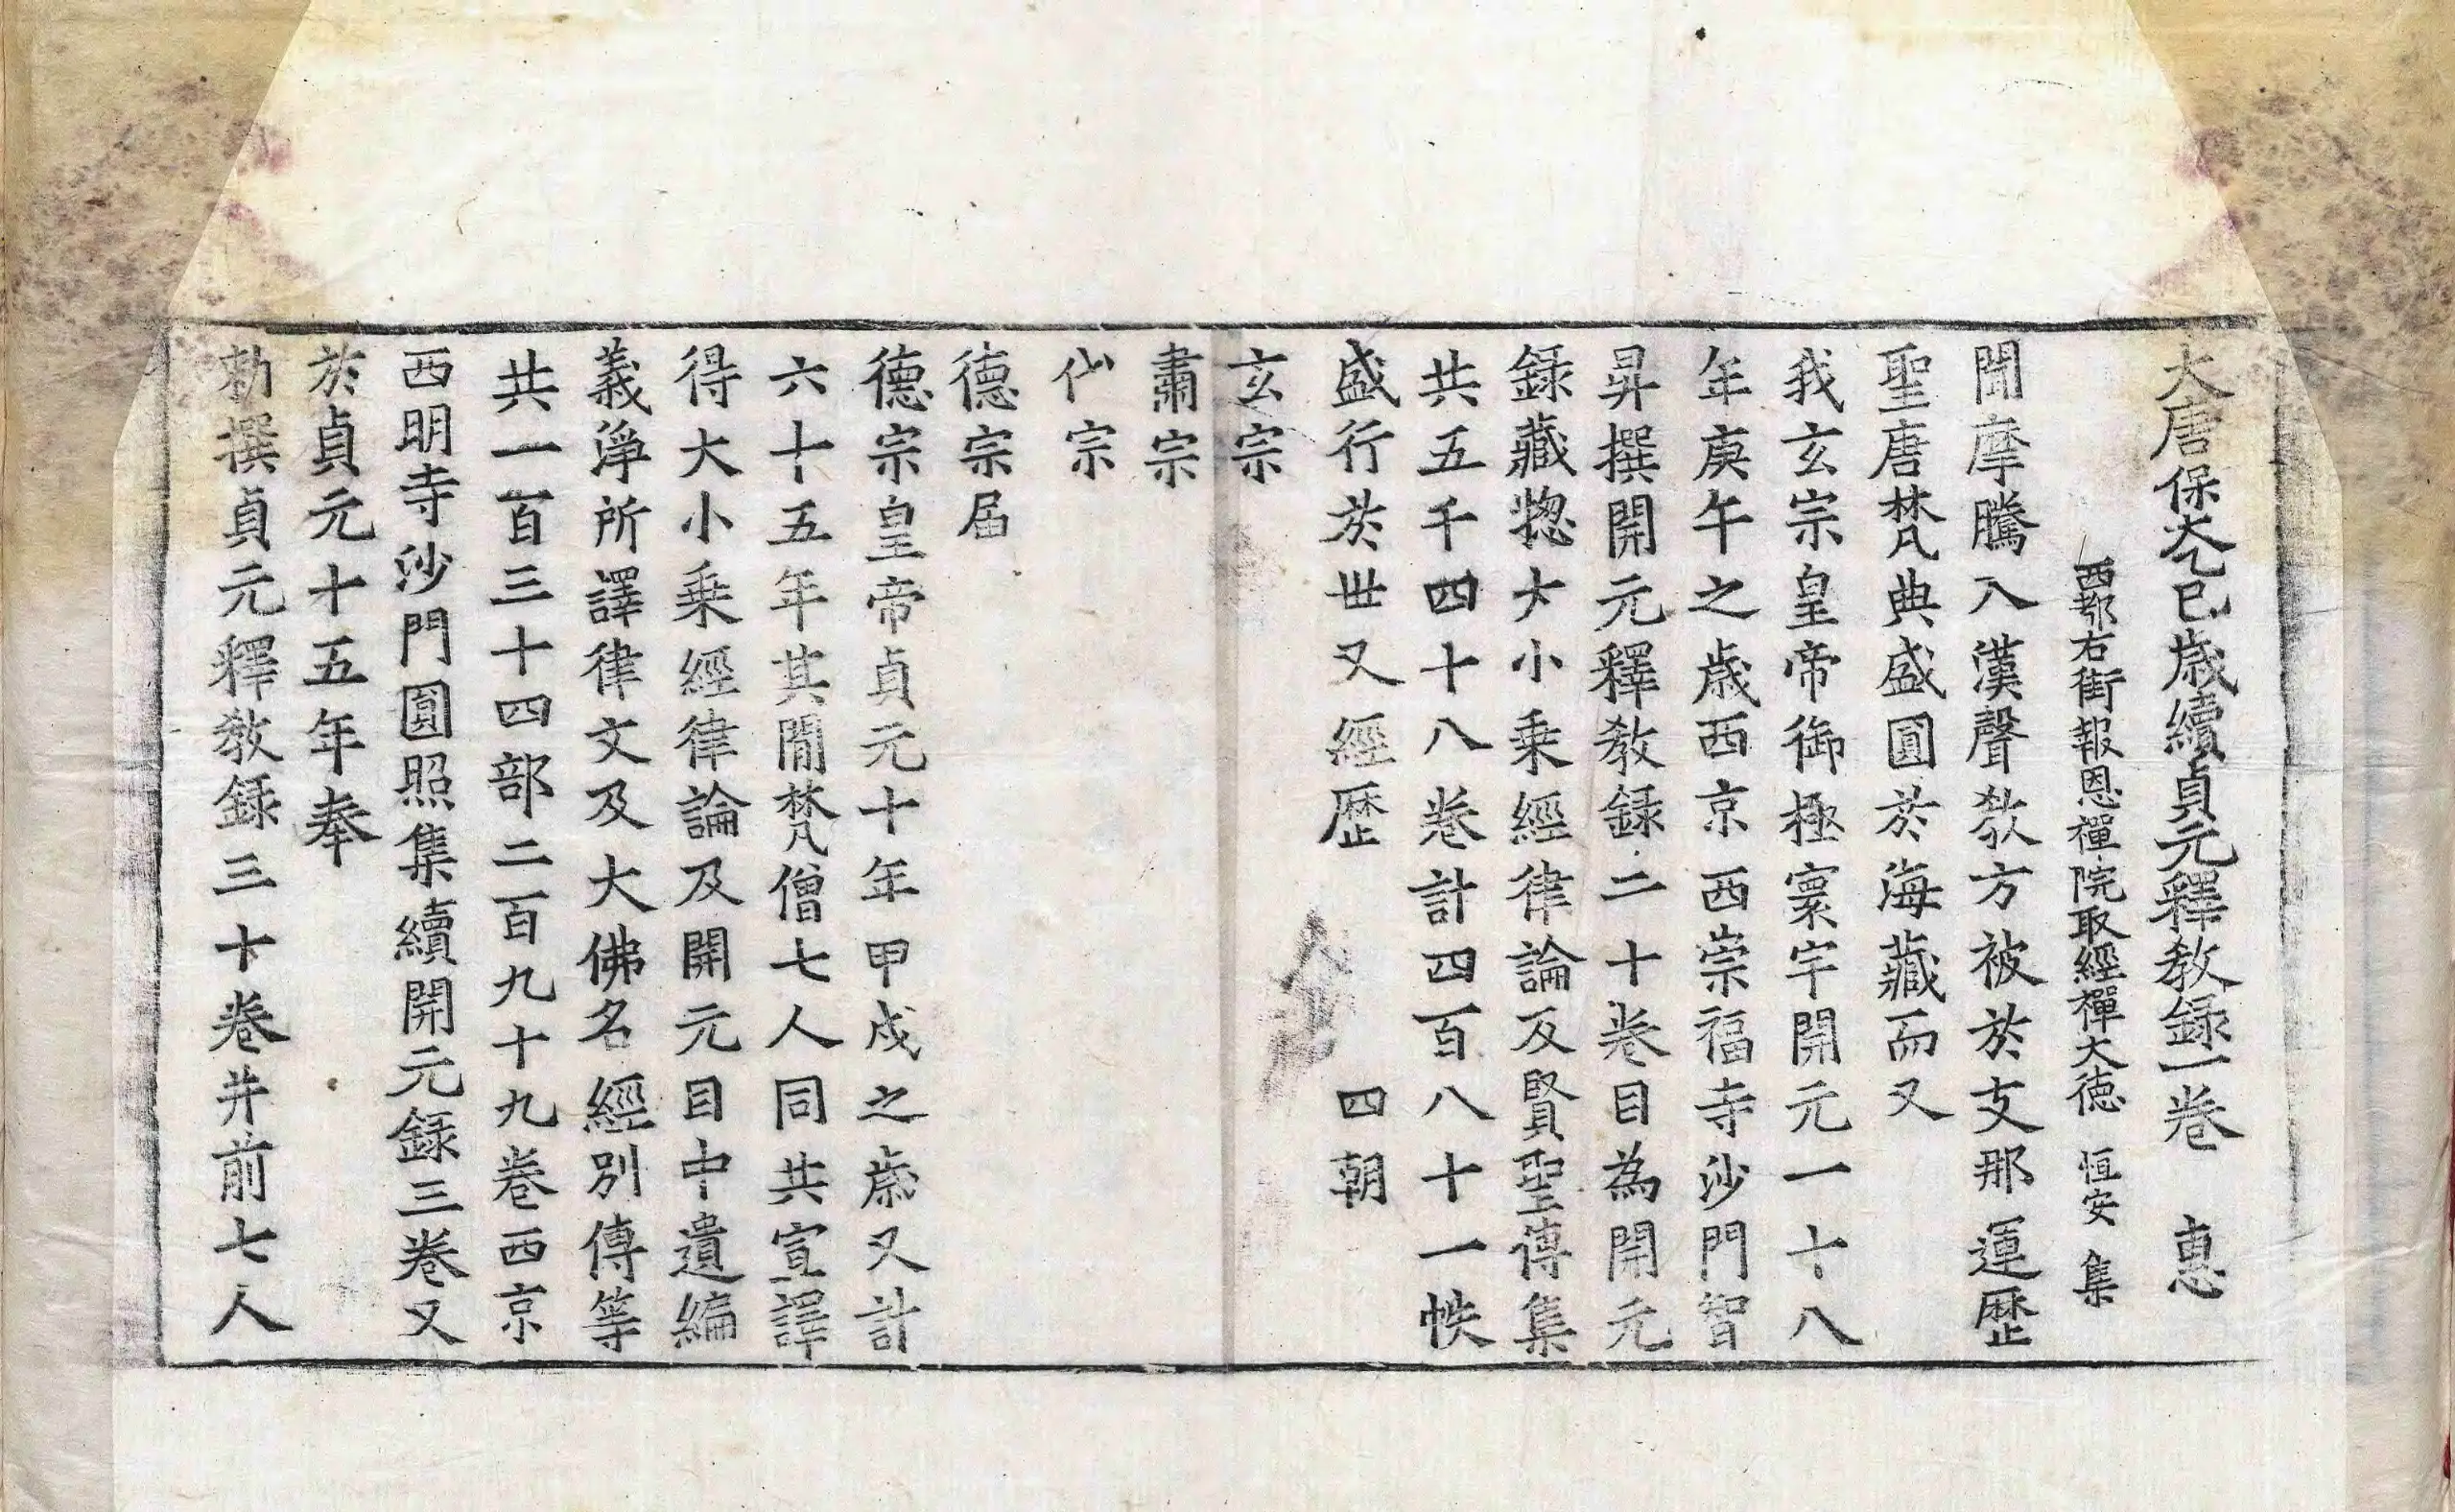 大唐保大乙巳歳續貞元釋教録一卷　惠
西都右街報恩禪院取經禪大德　恒安　集
聞摩騰入漢聲教方被於支那運歷
聖唐梵典盛圓於海藏而又
我玄宗皇帝御極寰宇開元一十八
年庚午之歳西京西崇福寺沙門智
昇撰開元釋教録二十卷目為開元
録藏惣大小乗經律論及賢聖傳集
共五千四十八卷計四百八十一帙
盛行於世又經歷　四朝
玄宗
肅宗
代宗
德宗届
德宗皇帝貞元十年甲戌之歳又計
六十五年其閒梵僧七人同共宣譯
得大小乗經律論及開元目中遺編
義淨所譯律文及大佛名經別傳等
共一百三十四部二百九十九卷西京
西明寺沙門圓照集續開元録三卷又
於貞元十五年奉
勅撰貞元釋教録三十卷并前七人